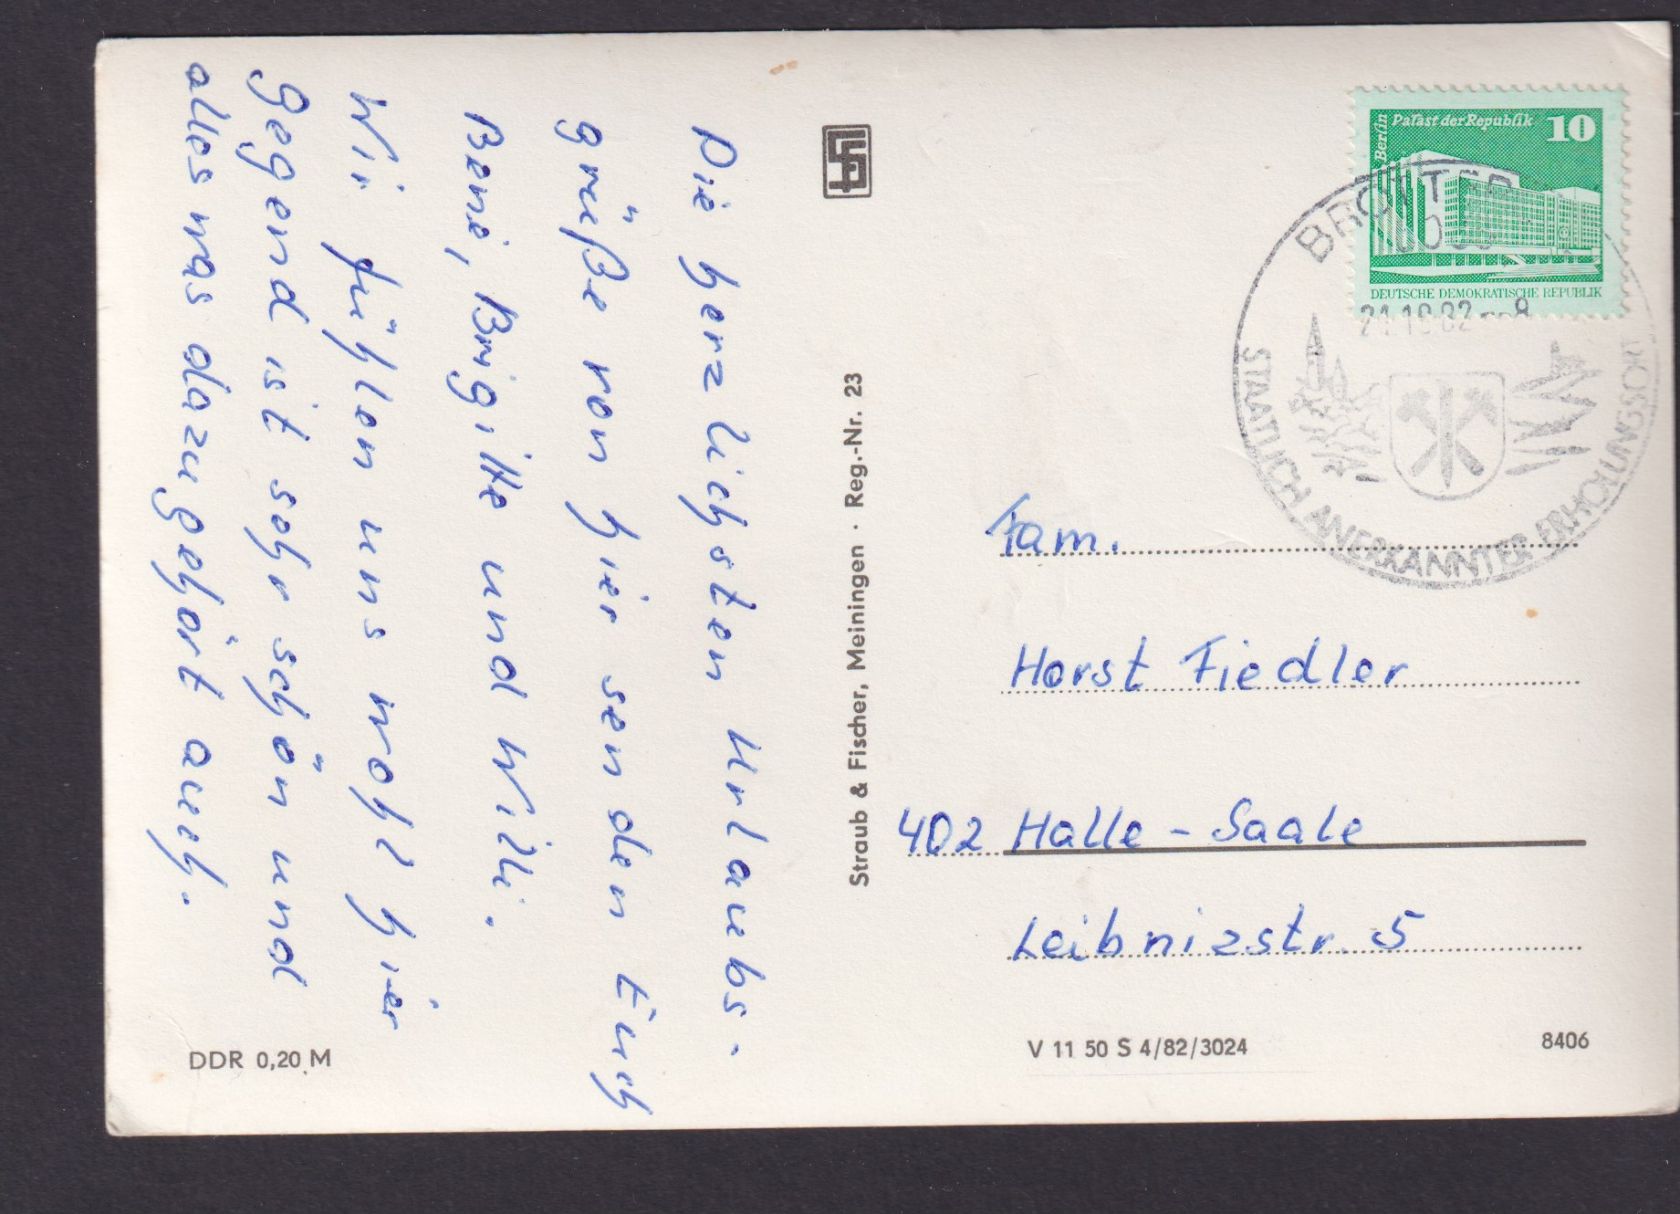 Die herzlichsten Urlaubs-
grüße von hier senden Euch
Beni, Brigitte und Willi.
Wir fühlen uns wohl hier
Gegend ist sehr schön und
alles was dazugehört auch.
DDR 0,20 M
Straub & Fischer, Meiningen · Reg.-Nr. 23
Berlin
Palast der Republik 10
DEUTSCHE DEMOKRATISCHE REPUBLIK
STAATLICH ANERKANNTER ERHOLUNGSORT
Fam.
Horst Fiedler
402 Halle - Saale
Leibnizstr. 5
V 11 50 S 4/82/3024
8406